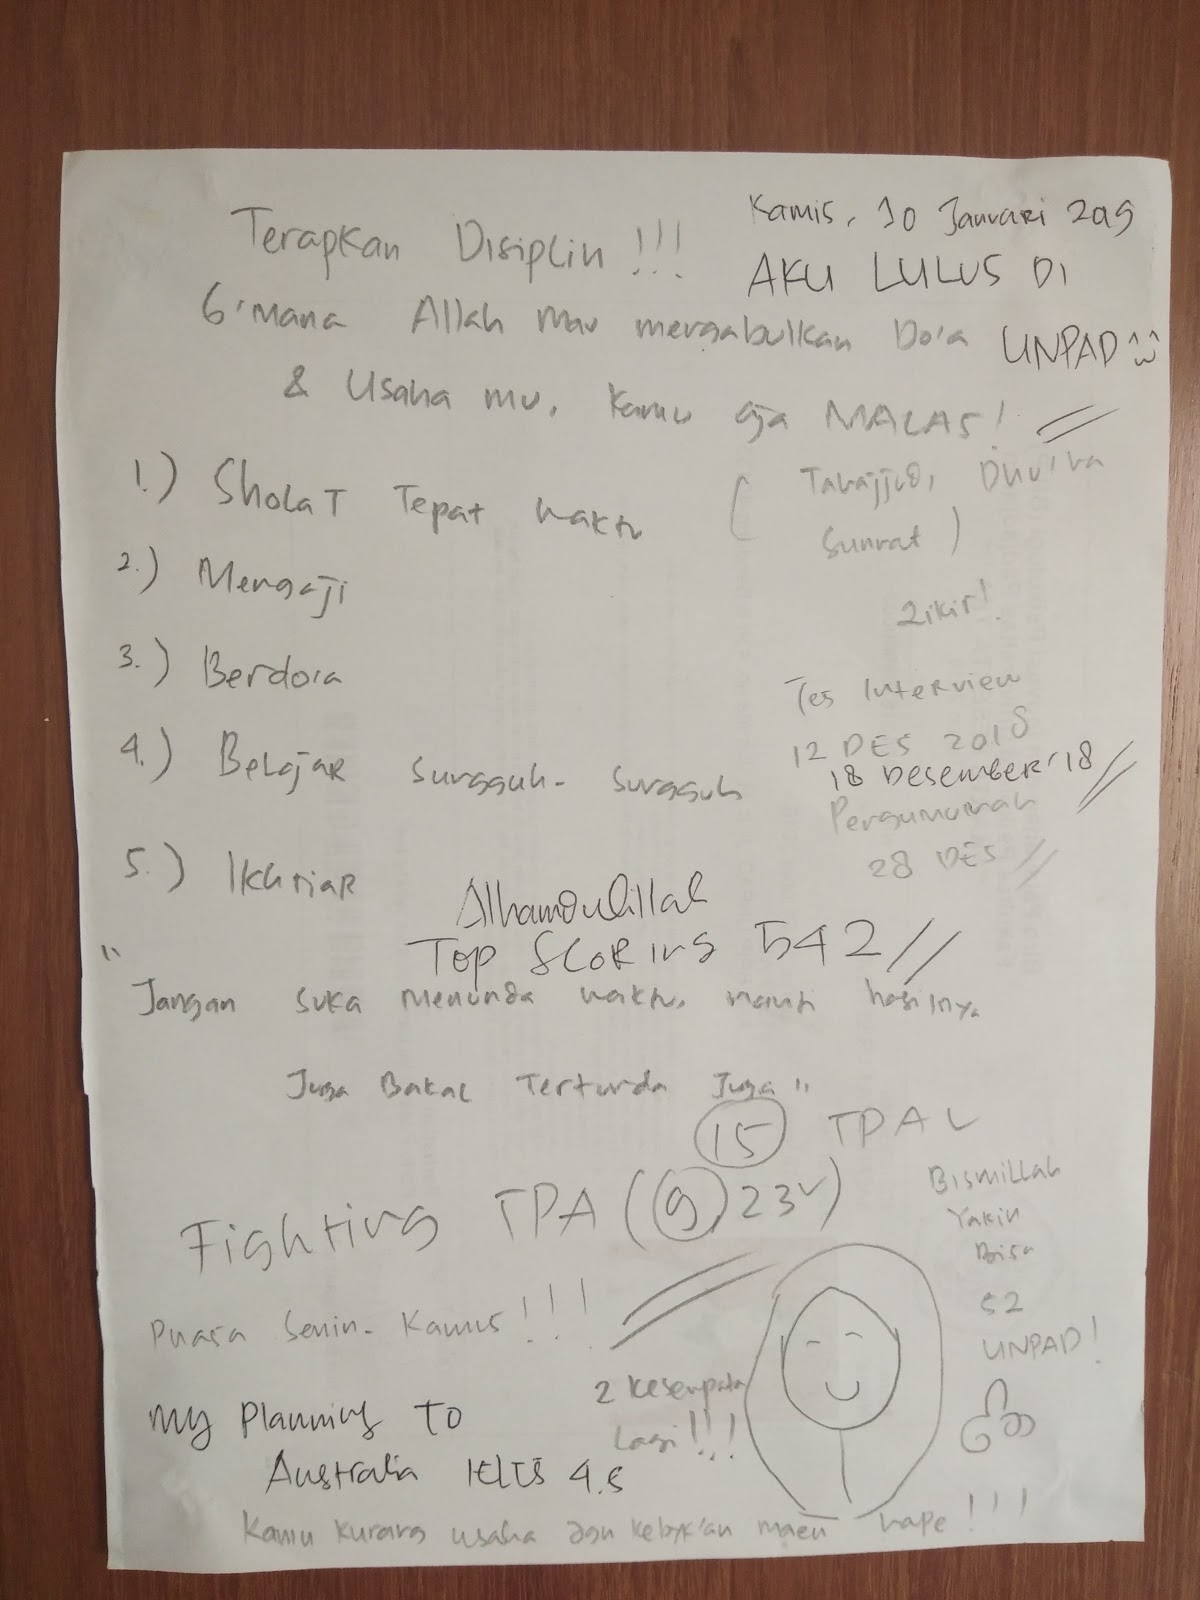 Kamis, 10 Januari 2019
Terapkan Disiplin !!!
AKU LULUS DI
UNPAD
G'mana Allah mau mengabulkan Do'a
& Usaha mu, kamu aja MALAS!
1.) Sholat Tepat waktu
( Tahajjud, Dhu'ha
Sunnat )
2.) Mengaji
Zikir!
3.) Berdo'a
Tes Interview
12 DES 2018
4.) Belajar sungguh-sungguh
18 DESEMBER'18
Pengumuman
28 DES
5.) Ikhtiar
Alhamdulillah
Top Scoring 542
"Jangan suka menunda waktu, nanti hasilnya
Juga Bakal Tertunda Juga"
15 TPA
Fighting TPA (9) 23
Bismillah
Yakin
Bisa
S2
UNPAD!
Puasa Senin-Kamis!!!
2 kesempatan
Lagi!!!
My Planning To
Australia IELTS 4.5
Kamu kurang usaha dgn kebyk'an maen hape!!!